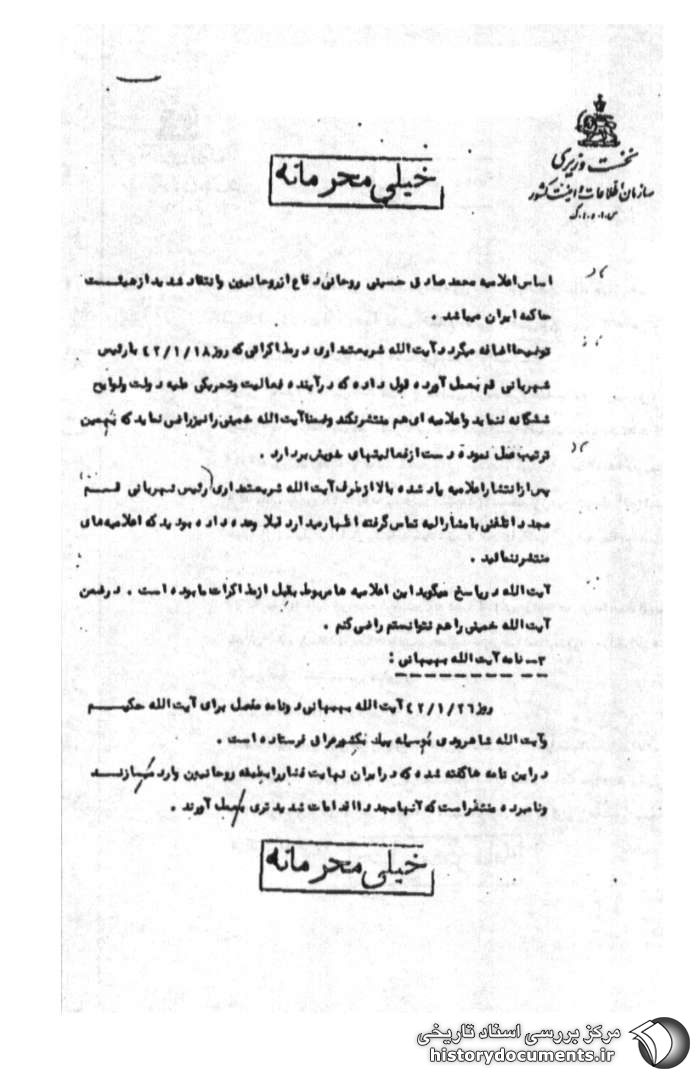 نخست وزیری
سازمان اطلاعات و امنیت کشور
س.ا.و.ا.ک
خیلی محرمانه
اساس اعلامیه محمد صادق حسینی روحانی دفاع از روحانیین و انتقاد شدید از هیئت
حاکمه ایران میباشد .
توضیحا اضافه میگردد آیت الله شریعتمداری در مذاکراتی که روز ۴۲/۱/۱۸ با رئیس
شهربانی قم بعمل آورده قول داده که در آینده فعالیت و تحریکی علیه دولت و لوایح
ششگانه ننماید و اعلامیه ای هم منتشر نکند و ضمنا آیت الله خمینی را نیز راضی نماید که بهمین
ترتیب عمل نموده دست از فعالیتهای خویش بردارد .
پس از انتشار اعلامیه یاد شده بالا از طرف آیت الله شریعتمداری رئیس شهربانی قم
مجددا تلفنی با مشارالیه تماس گرفته اظهار میدارد قبلا وعده داده بودید که اعلامیه های
منتشر ننمائید .
آیت الله در پاسخ میگوید این اعلامیه ها مربوط بقبل از مذاکرات ما بوده است . در ضمن
آیت الله خمینی را هم نتوانستم راضی کنم .
۳- نامه آیت الله بهبهانی :
روز ۴۲/۱/۲۶ آیت الله بهبهانی دو نامه مفصل برای آیت الله حکیم
و آیت الله شاهرودی بوسیله پیک بکشور عراق فرستاده است .
در این نامه ها گفته شده که در ایران نهایت فشار را بطبقه روحانیین وارد میسازند
و نامبرده منتظر است که آنها مجددا اقدامات شدید تری بعمل آورند .
خیلی محرمانه
مرکز بررسی اسناد تاریخی
historydocuments.ir